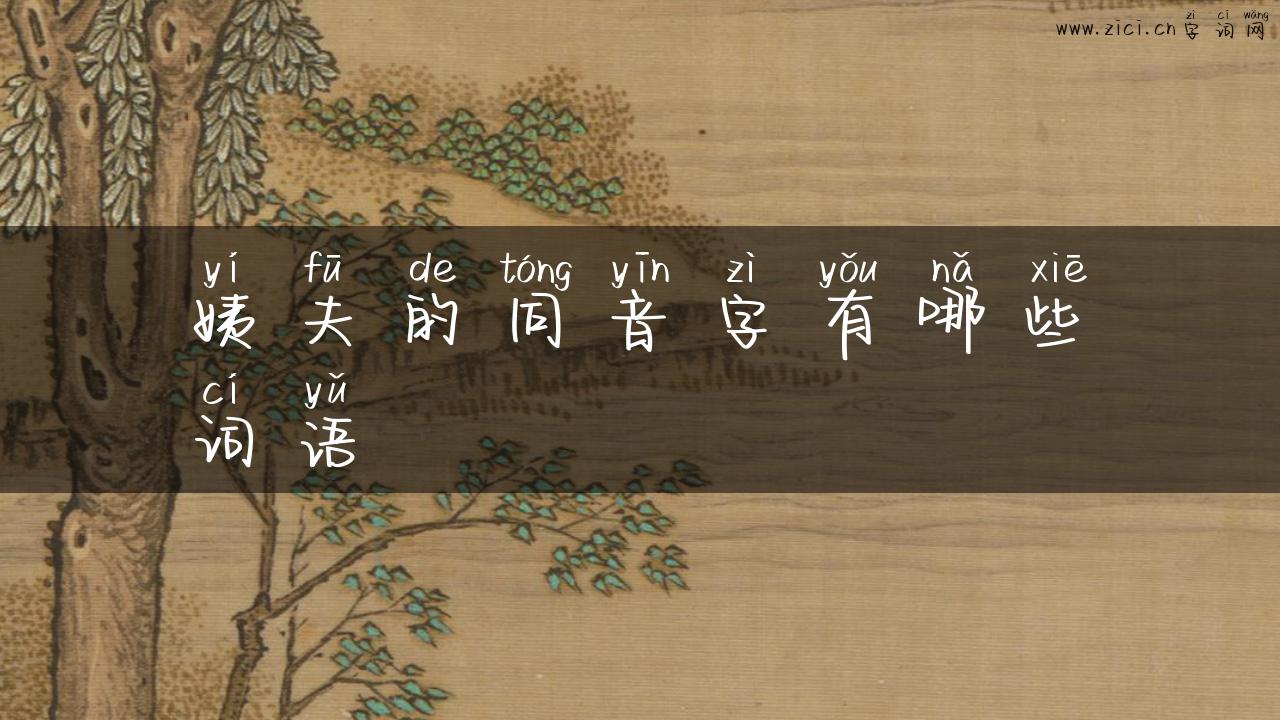 zì cí wǎng
www.zici.cn 字词网
yí fū de tóng yīn zì yǒu nǎ xiē
姨夫的同音字有哪些
cí yǔ
词语